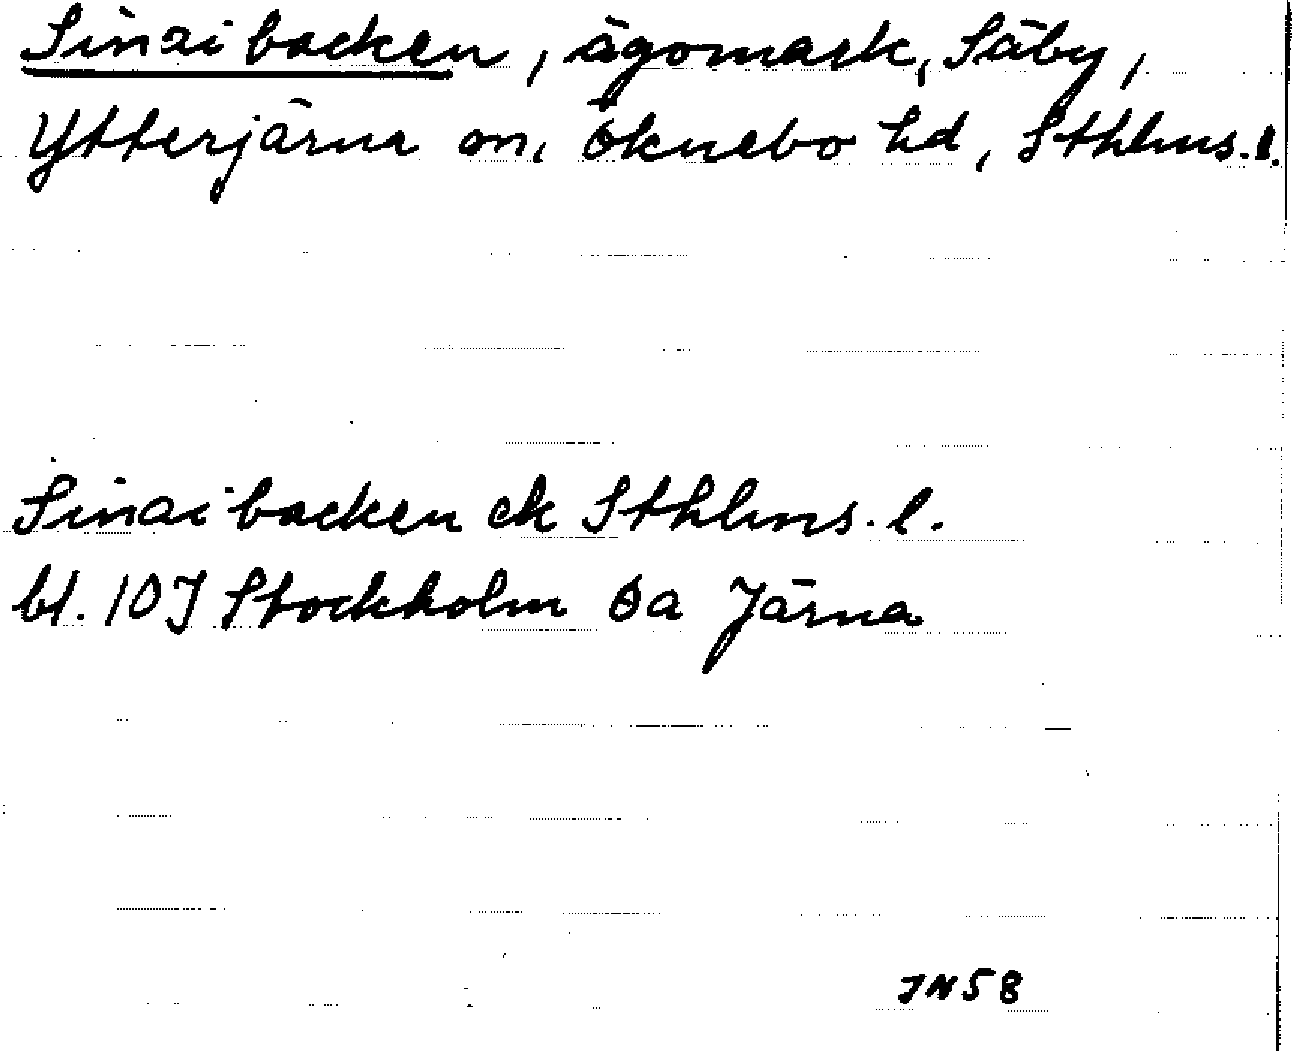 Sinaibacken, ägomark, Säby,
Ytterjärna sn, Öknebo hd, Sthlms.l.
Sinaibacken ek Sthlms.l.
bl. 10I Stockholm 6a Järna
JN58